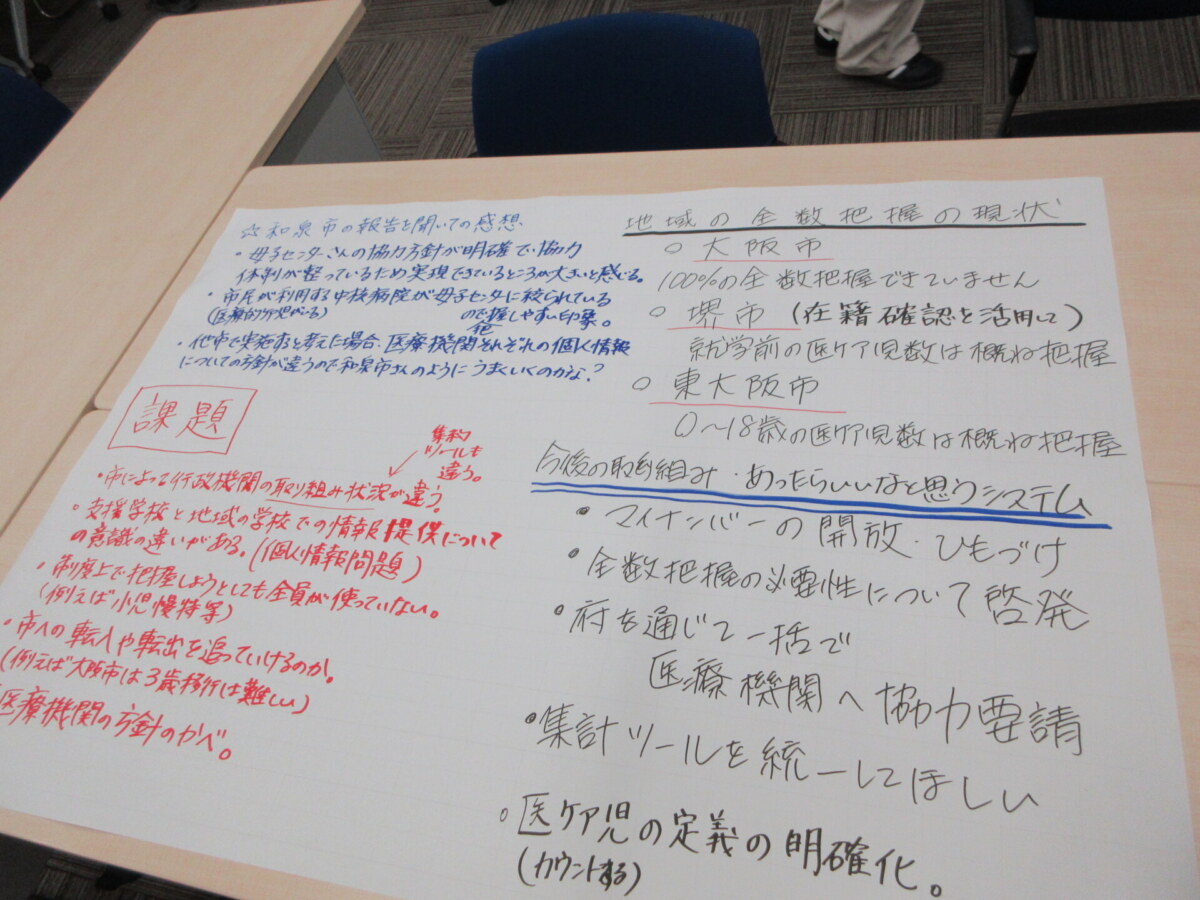 ☆和泉市の報告を聞いての感想
・母子センターさんの協力方針が明確で、協力
体制が整っているため実現できているところが大きいと感じる。
・市民が利用する中核病院が母子センターに絞られている
(医療的ケア児がいる)
ので把握しやすい印象。
・他市で実施すると考えた場合、医療機関それぞれの個人情報
についての方針が違うので和泉市さんのようにうまくいくのかな?
課題
集約
ツールも
違う。
・市によって行政機関の取り組み状況が違う!
・支援学校と地域の学校での情報提供について
の意識の違いがある。(個人情報問題)
・制度上で把握しようとしても全員が使っていない。
(例えば小児慢特等)
・市への転入や転出を追っていけるのか。
(例えば大阪市は3歳移行は難しい)
医療機関の方針のかべ。
地域の全数把握の現状
○大阪市
100%の全数把握できていません
○堺市(在籍確認を活用して)
就学前の医ケア児数は概ね把握
○東大阪市
0〜18歳の医ケア児数は概ね把握
今後の取り組み・あったらいいなと思うシステム
・マイナンバーの開放・ひもづけ
・全数把握の必要性について啓発
・府を通じて一括で
医療機関へ協力要請
・集計ツールを統一してほしい
・医ケア児の定義の明確化。
(カウントする)